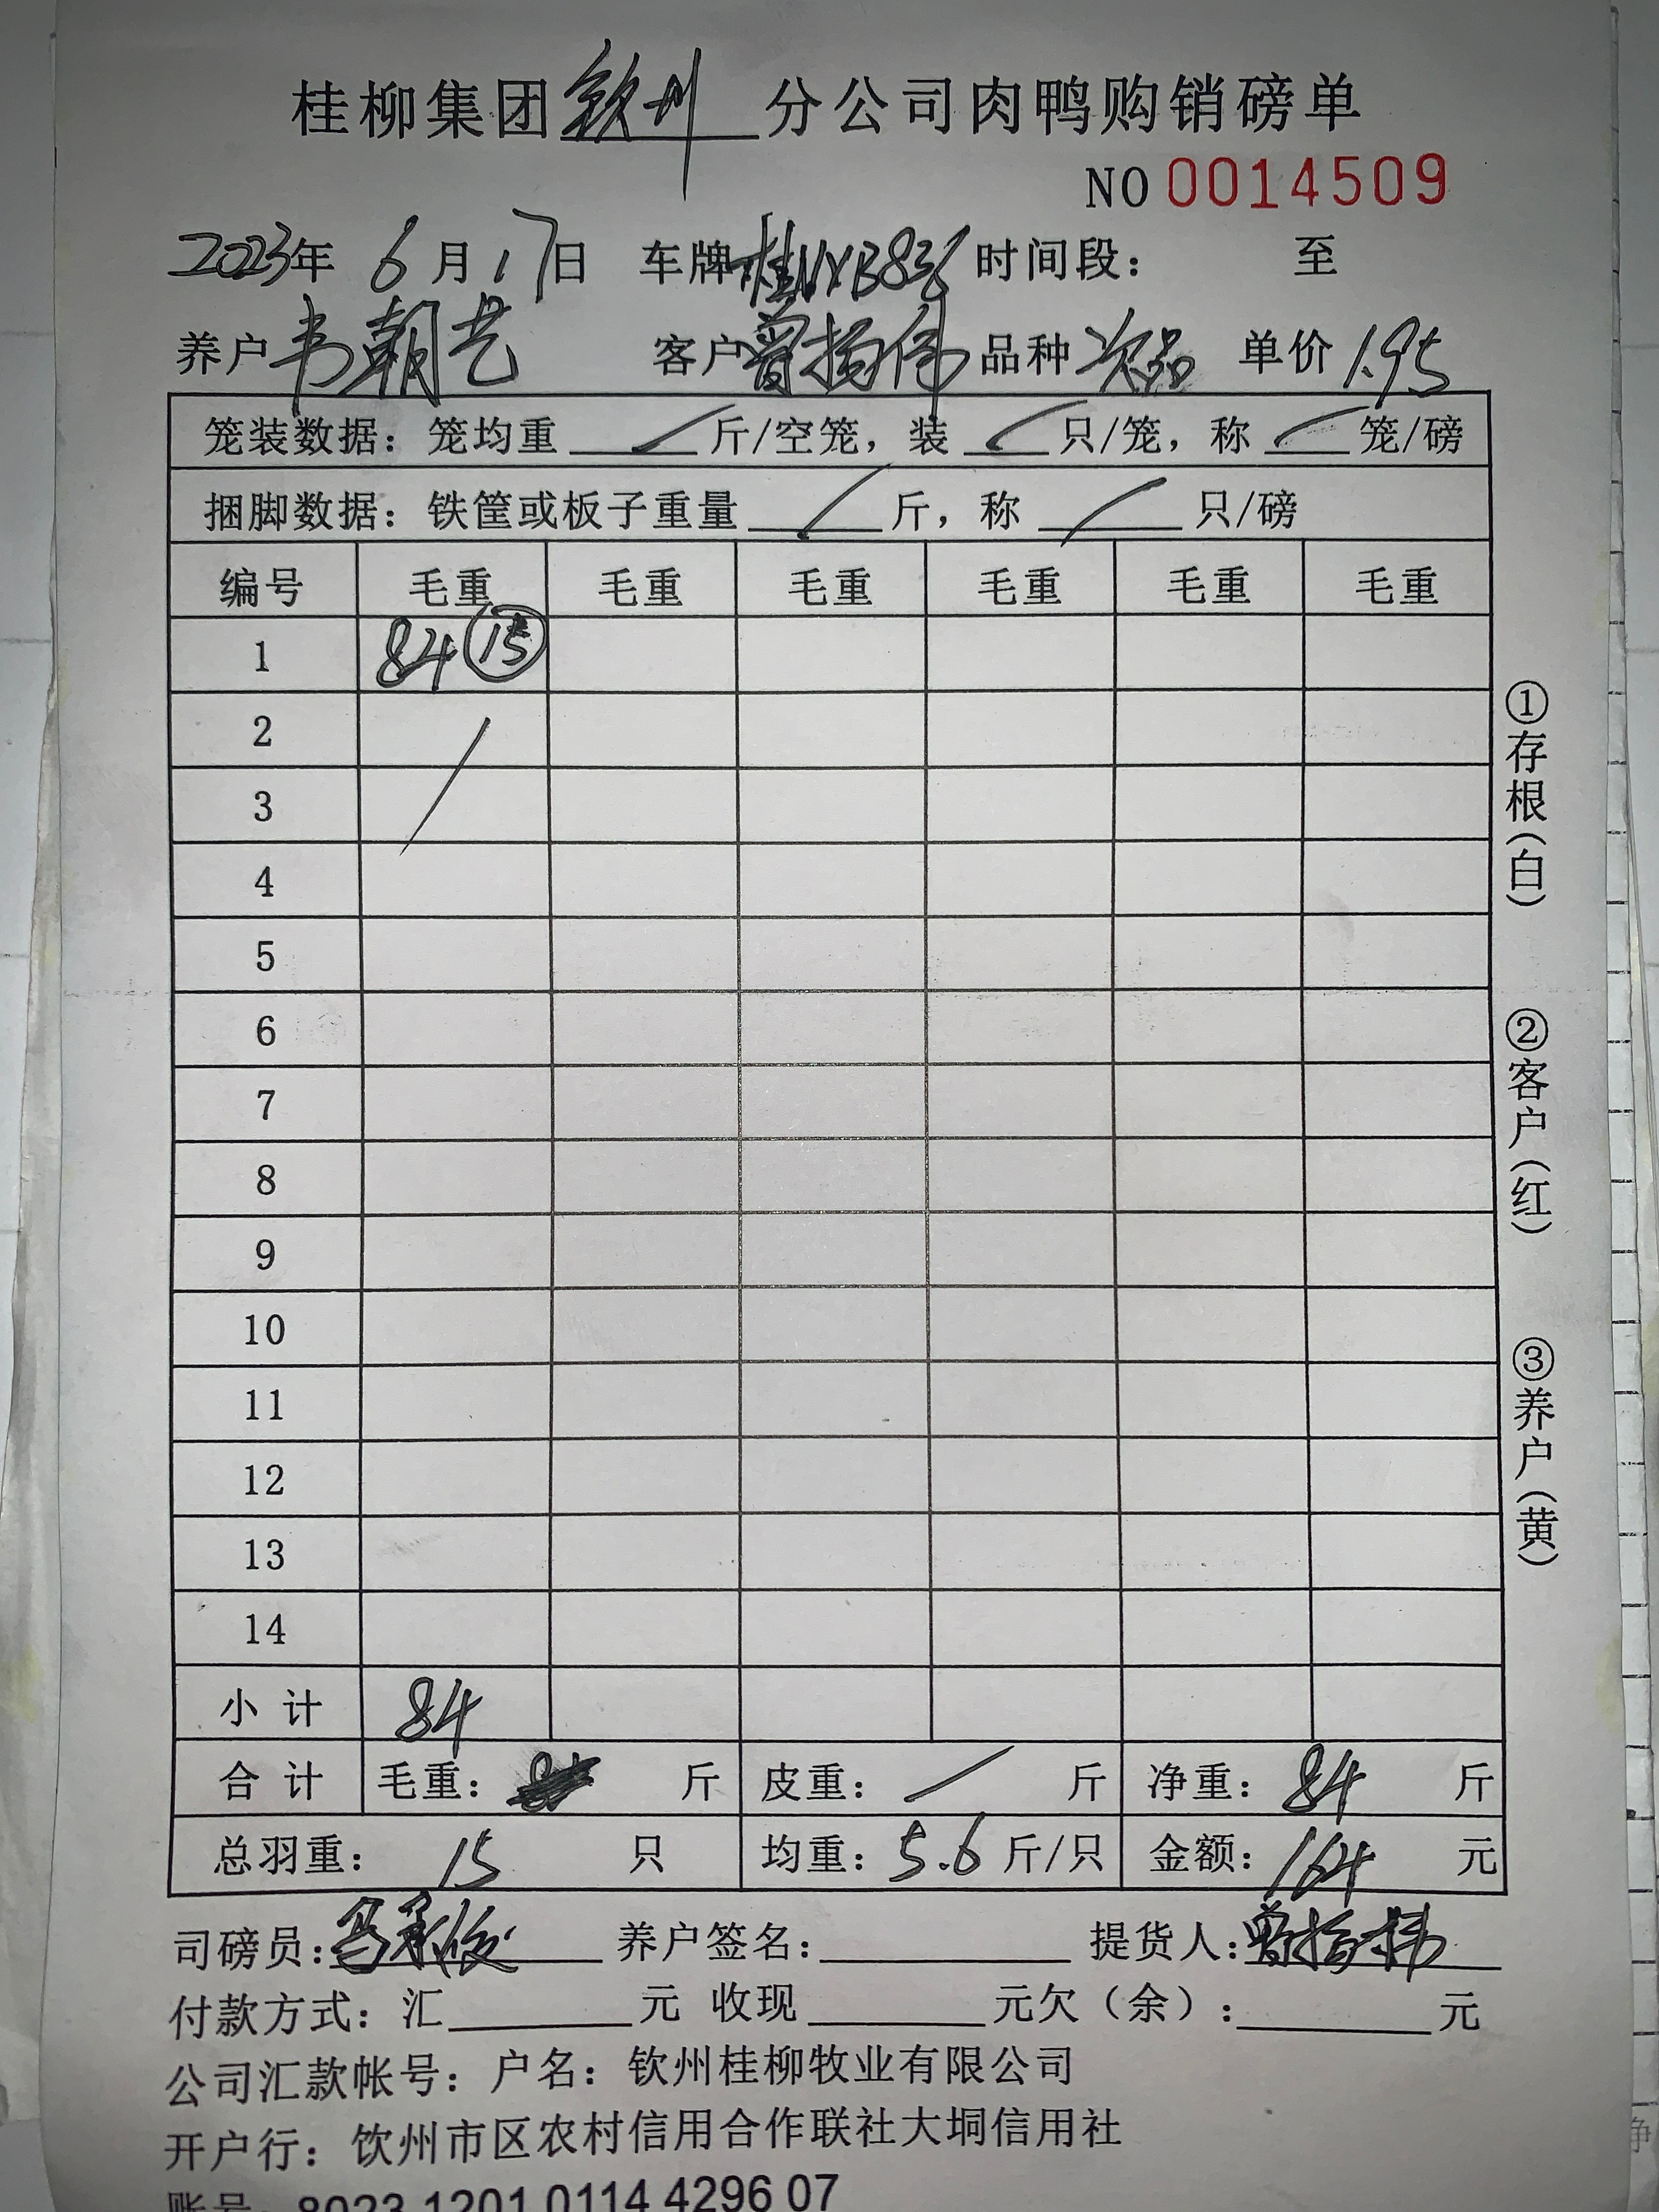 桂柳集团钦州分公司肉鸭购销磅单
NO 0014509
2023年 6月17日 车牌:桂NXB836 时间段: 至
养户 韦朝艺 客户 曾扬伟 品种 次品 单价 1.95
笼装数据: 笼均重 / 斤/空笼, 装 / 只/笼, 称 / 笼/磅
捆脚数据: 铁筐或板子重量 / 斤, 称 / 只/磅
编号 毛重 毛重 毛重 毛重 毛重 毛重
1 84 ⑮
2 /
3
4
5
6
7
8
9
10
11
12
13
14
小计 84
合计 毛重: 斤 皮重: / 斤 净重: 84 斤
总羽重: 15 只 均重: 5.6 斤/只 金额: 164 元
①存根(白)
②客户(红)
③养户(黄)
司磅员: 冯承俊 养户签名: 提货人: 曾扬伟
付款方式: 汇 元 收现 元欠(余): 元
公司汇款帐号: 户名: 钦州桂柳牧业有限公司
开户行: 钦州市区农村信用合作联社大垌信用社
账号: 8023 1201 0114 4296 07